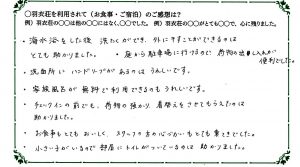 ○羽衣荘を利用されて（お食事・ご宿泊）のご感想は？
例）羽衣荘の○○は他の○○にはなく、○○でした。 例）羽衣荘の○○がとても○○で、心に残りました。
・海水浴をした後 洗たくができ、外に干すことができるのは
とても助かりました。 ・庭から駐車場に行けるので 荷物の出し入れが
便利でした。
・洗面所に ハンドソープがあるのは うれしいです。
・家族風呂が無料で利用できるのもうれしいです。
・チェックインの前でも、荷物の預かり、着替えをさせてもらえたのは
助かりました。
・お食事もとてもおいしく、スタッフの方の心づかいもとても嬉しかったです。
・小さい子がいるので部屋にトイレがついているのは 助かりました。